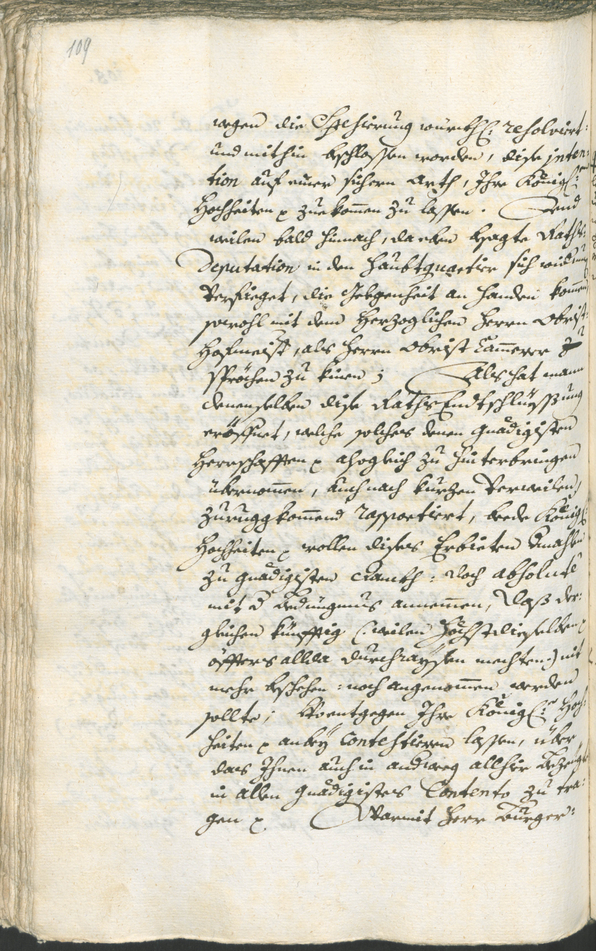 109
wegen die Spesirung würckh: resolvirt:
und mithin beschlossen worden, dise inten-
tion auf einer sichern Arth, Ihre Königl:
Hochheiten p zuekommen zu lassen. Und
weilen bald hinnach, da oben besagte Raths-
Deputation in den Haubtquartier sich
verfüeget, die Gelegenheit an Handen kommen
sowohl mit dem Herzoglichen Herrn Obrist-
Hofmeist, als Herrn Obrist Cammerer
sprechen zu könen; Als hat mann
denenselben dise Raths Endtschlüssung
eröffnet, welche solches denen gnädigisten
Herrschafften p alsogleich zu hinterbringen
übernommen, auch nach kurzen verweilen,
zuruggkommend rapportiert, beede Königl:
Hochheiten p wollen dises Erbieten
zu gnädigisten Danckh: doch absolute
mit d Bedingnus annemmen, dass der-
gleichen künfftig (: weilen Höchstdieselben
öffters allda durchraysen mechten:) nit
mehr beschehen: noch angenommen werden
sollte; Wo entgegen Ihre Königl: Hoch-
heiten p anbey contestieren lassen, über
das Ihnen auch in andweg allhie bezeigte
in allen gnädigistes Contento zu tra-
gen p. Warmit Herr Burger-